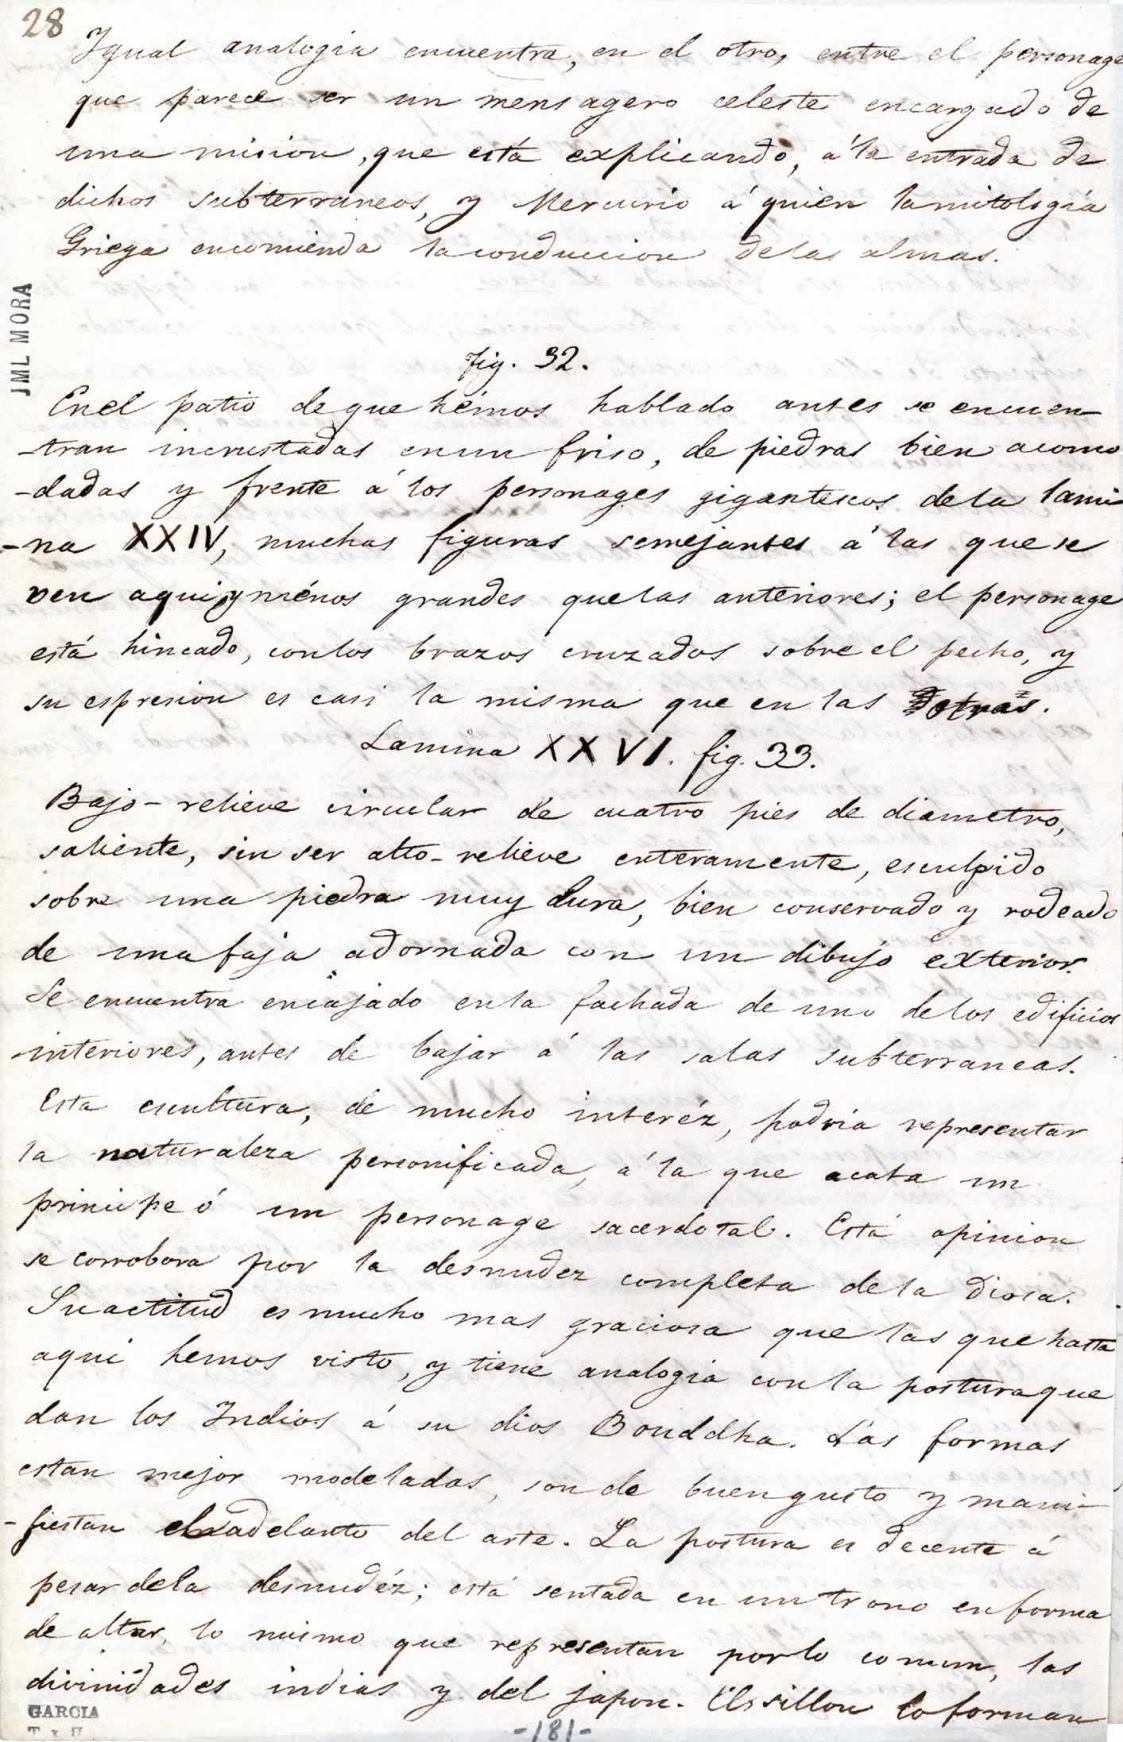 28
Igual analogia encuentra, en el otro, entre el personage
que parece ser un mensagero celeste encargado de
una mision, que está explicando, á la entrada de
dichos subterraneos, y Mercurio á quien la mitologia
Griega encomienda la conduccion de las almas.
JML MORA
fig. 32.
En el patio de que hémos hablado antes se encuen-
-tran incrustadas en un friso, de piedras bien acomo
-dadas y frente á los personages gigantescos de la lami
-na XXIV, muchas figuras semejantes á las que se
ven aqui y ménos grandes que las anteriores; el personage
está hincado, con los brazos cruzados sobre el pecho, y
su espresion es casi la misma que en las otras.
Lamina XXVI. fig. 33.
Bajo-relieve circular de cuatro pies de diametro,
saliente, sin ser alto-relieve enteramente, esculpido
sobre una piedra muy dura, bien conservado y rodeado
de una faja adornada con un dibujo exterior.
Se encuentra encajado en la fachada de uno de los edificios
interiores, antes de bajar á las salas subterraneas.
Esta escultura, de mucho interéz, podria representar
la naturaleza personificada, á la que acata un
principe ó un personage sacerdotal. Está opinion
se corrobora por la desnudez completa de la diosa.
Su actitud es mucho mas graciosa que las que hasta
aqui hemos visto, y tiene analogia con la postura que
dan los Indios á su dios Bouddha. Las formas
estan mejor modeladas, son de buen gusto y mani-
-fiestan el adelanto del arte. La postura es decente á
pesar de la desnudéz; está sentada en un trono en forma
de altar, lo mismo que representan por lo comun, las
divinidades indias y del japon. El sillon lo forman
GARCIA
-181-